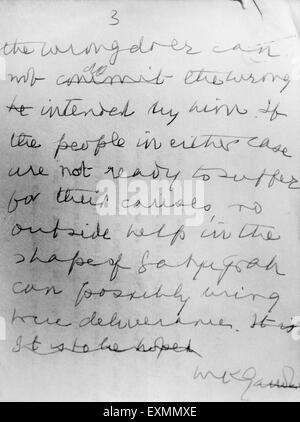 3
the wrongdoer can
not commit the wrong
he intended by him. If
the people in either case
are not ready to suffer
for their causes no
outside help in the
shape of satyagrah
can possibly bring
true deliverance. It is
It is to be hoped
MKGandhi
alamy stock photo
EXMMXE
www.alamy.com